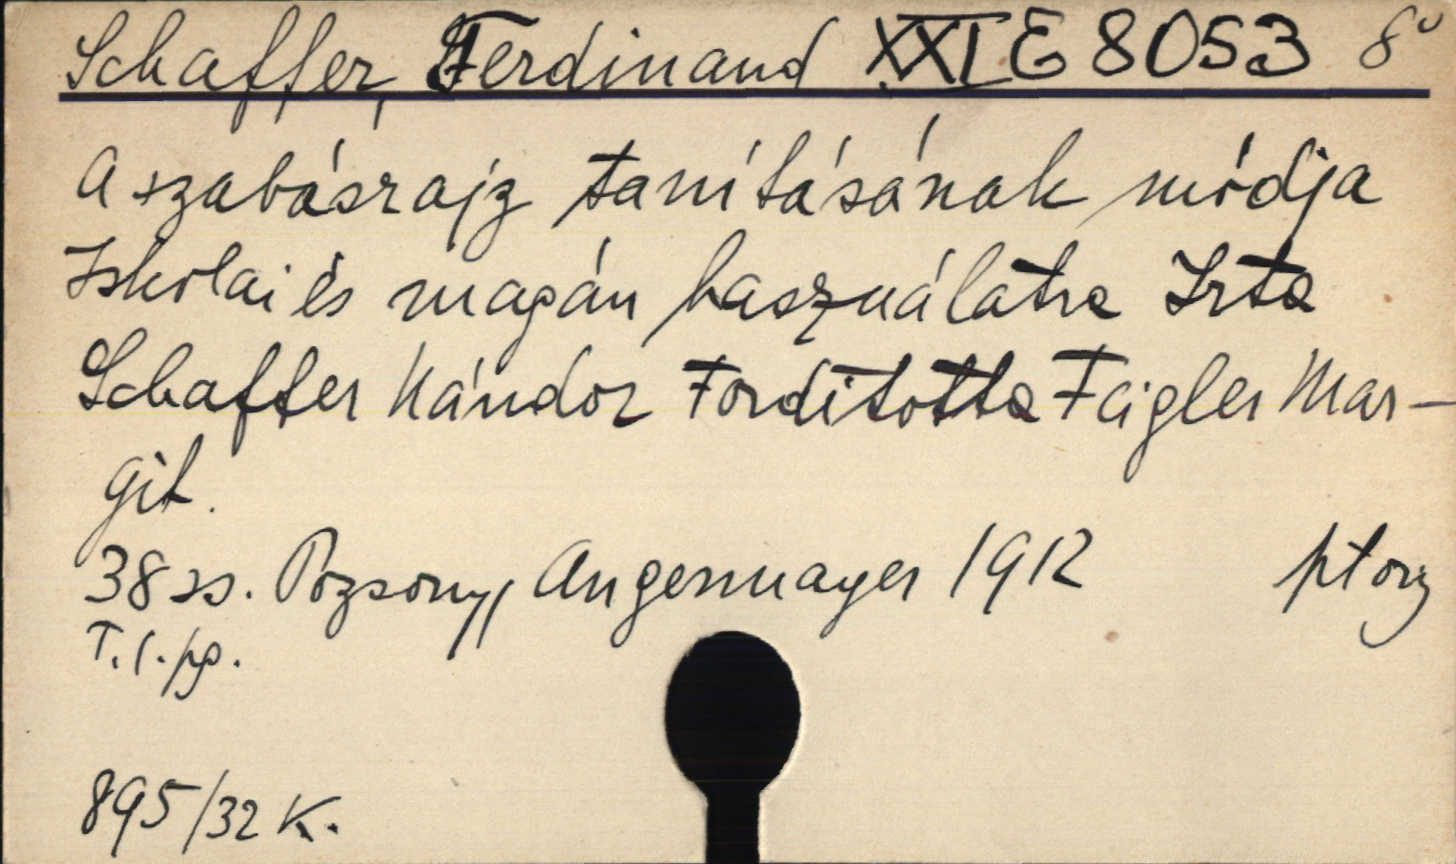 Schaffer, Ferdinand XXI E 8053 8°
A szabásrajz tanításának módja
Iskolai és magán használatra Irta
Schaffer Nándor Forditotta Feigler Mar-
git.
38 ss. Pozsony, Angermayer 1912
T. l. pg.
895/32 K.